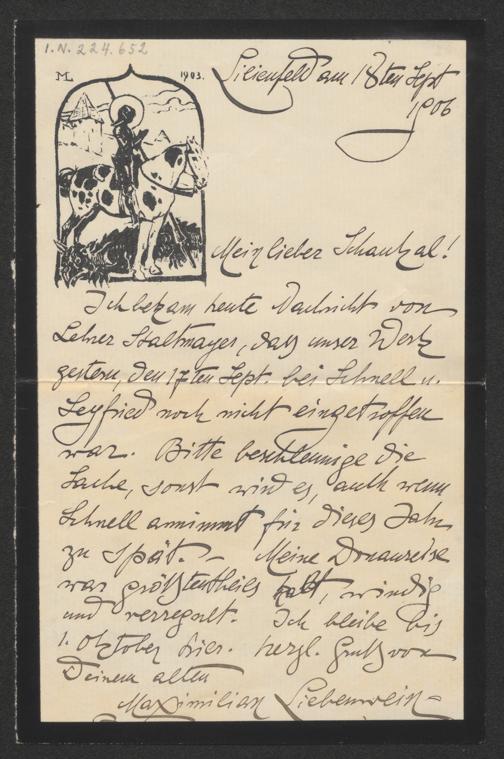 I.N. 224.652
ML 1903.
Lilienfeld am 18ten Sept
1906
Mein lieber Schaukal!
Ich bekam heute Nachricht von
Lehrer Staltmayer, dass unser Werk
gestern, den 17ten Sept. bei Schnell u.
Seyfried noch nicht eingetroffen
war. Bitte beschleunige die
Sache, sonst wird es, auch wenn
Schnell annimmt für dieses Jahr
zu spät. – Meine Donaureise
war größtentheils kalt, windig
und verregnet. Ich bleibe bis
1. Oktober hier. Herzl. Gruß von
Deinem alten
Maximilian Liebenwein